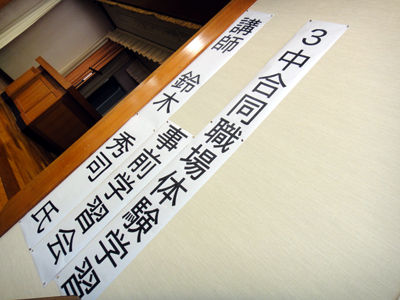 3中合同職場体験学習
事前学習会
講師 鈴木 秀司 氏